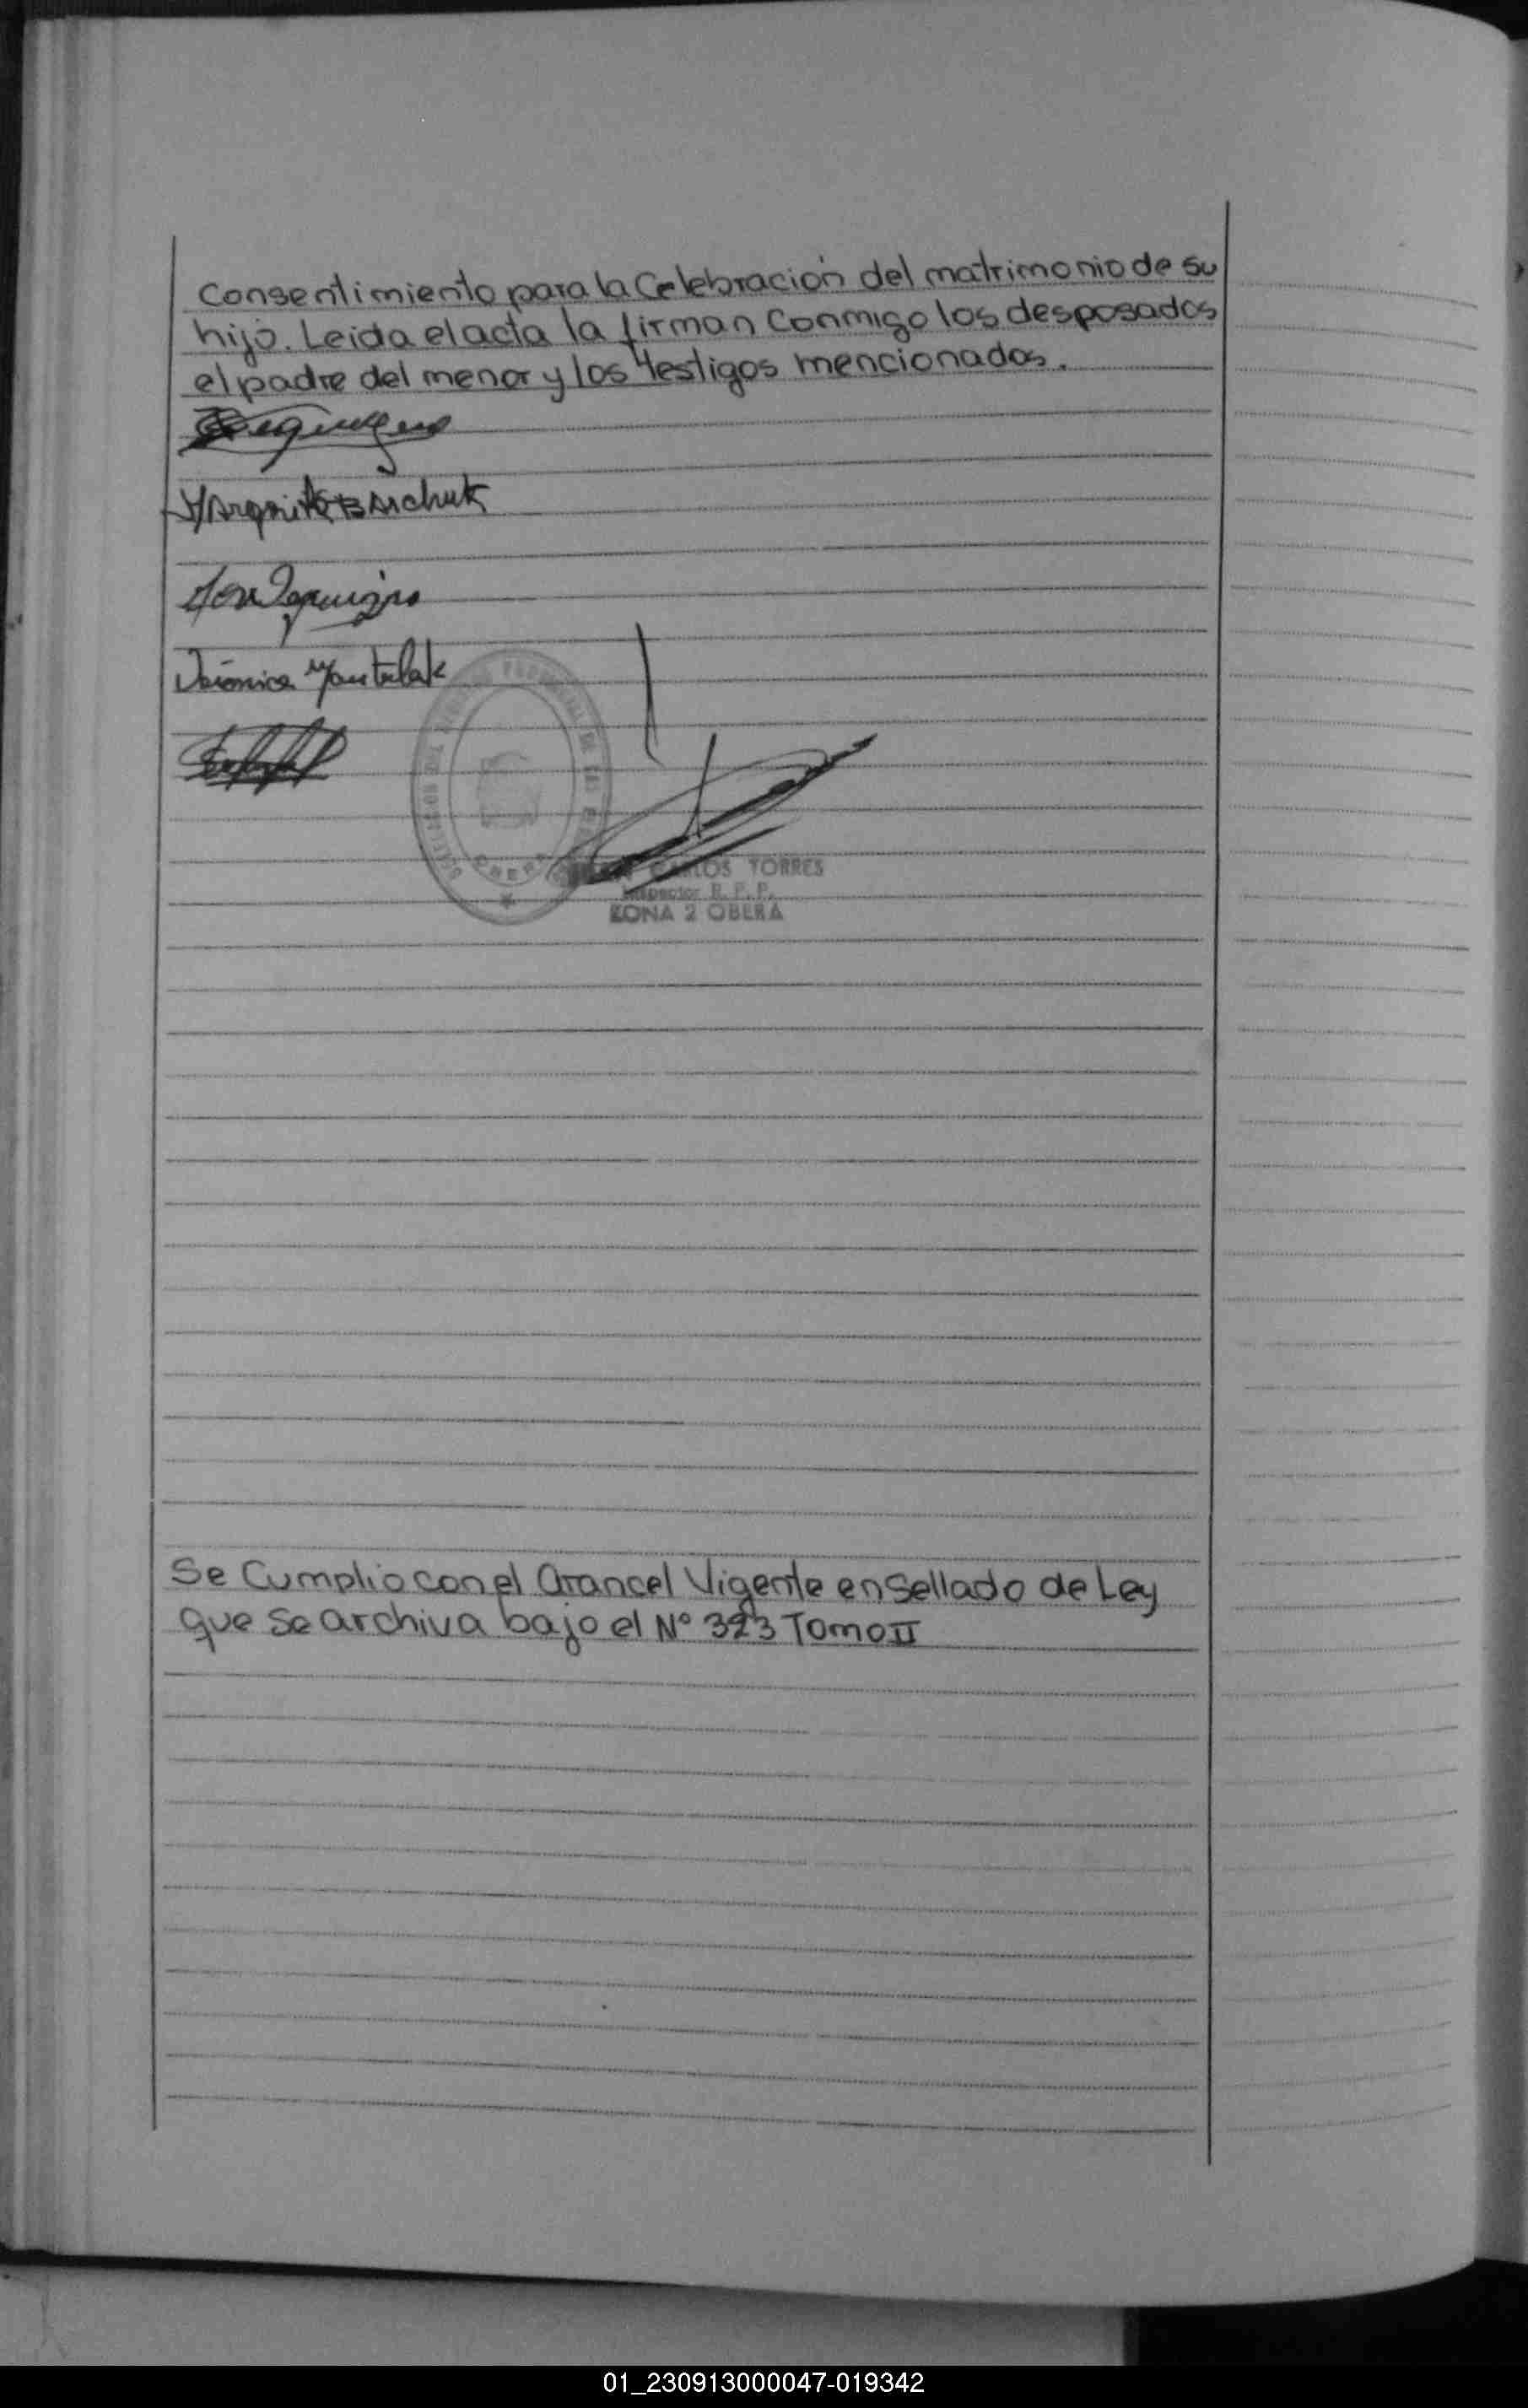 Consentimiento para la Celebración del matrimonio de su
hijo. Leida el acta la firman Conmigo los desposados
el padre del menor y los testigos mencionados.
Margarita Baschuk
Verónica
CARLOS TORRES
Inspector R. P. P.
ZONA 2 OBERA
Se Cumplio con el Arancel Vigente en Sellado de Ley
que se archiva bajo el Nº 323 Tomo II
01_230913000047-019342